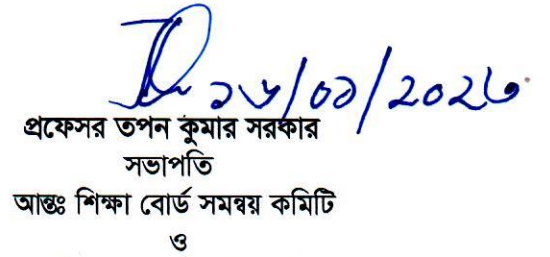 ১৬/০১/২০২৩
প্রফেসর তপন কুমার সরকার
সভাপতি
আন্তঃ শিক্ষা বোর্ড সমন্বয় কমিটি
ও